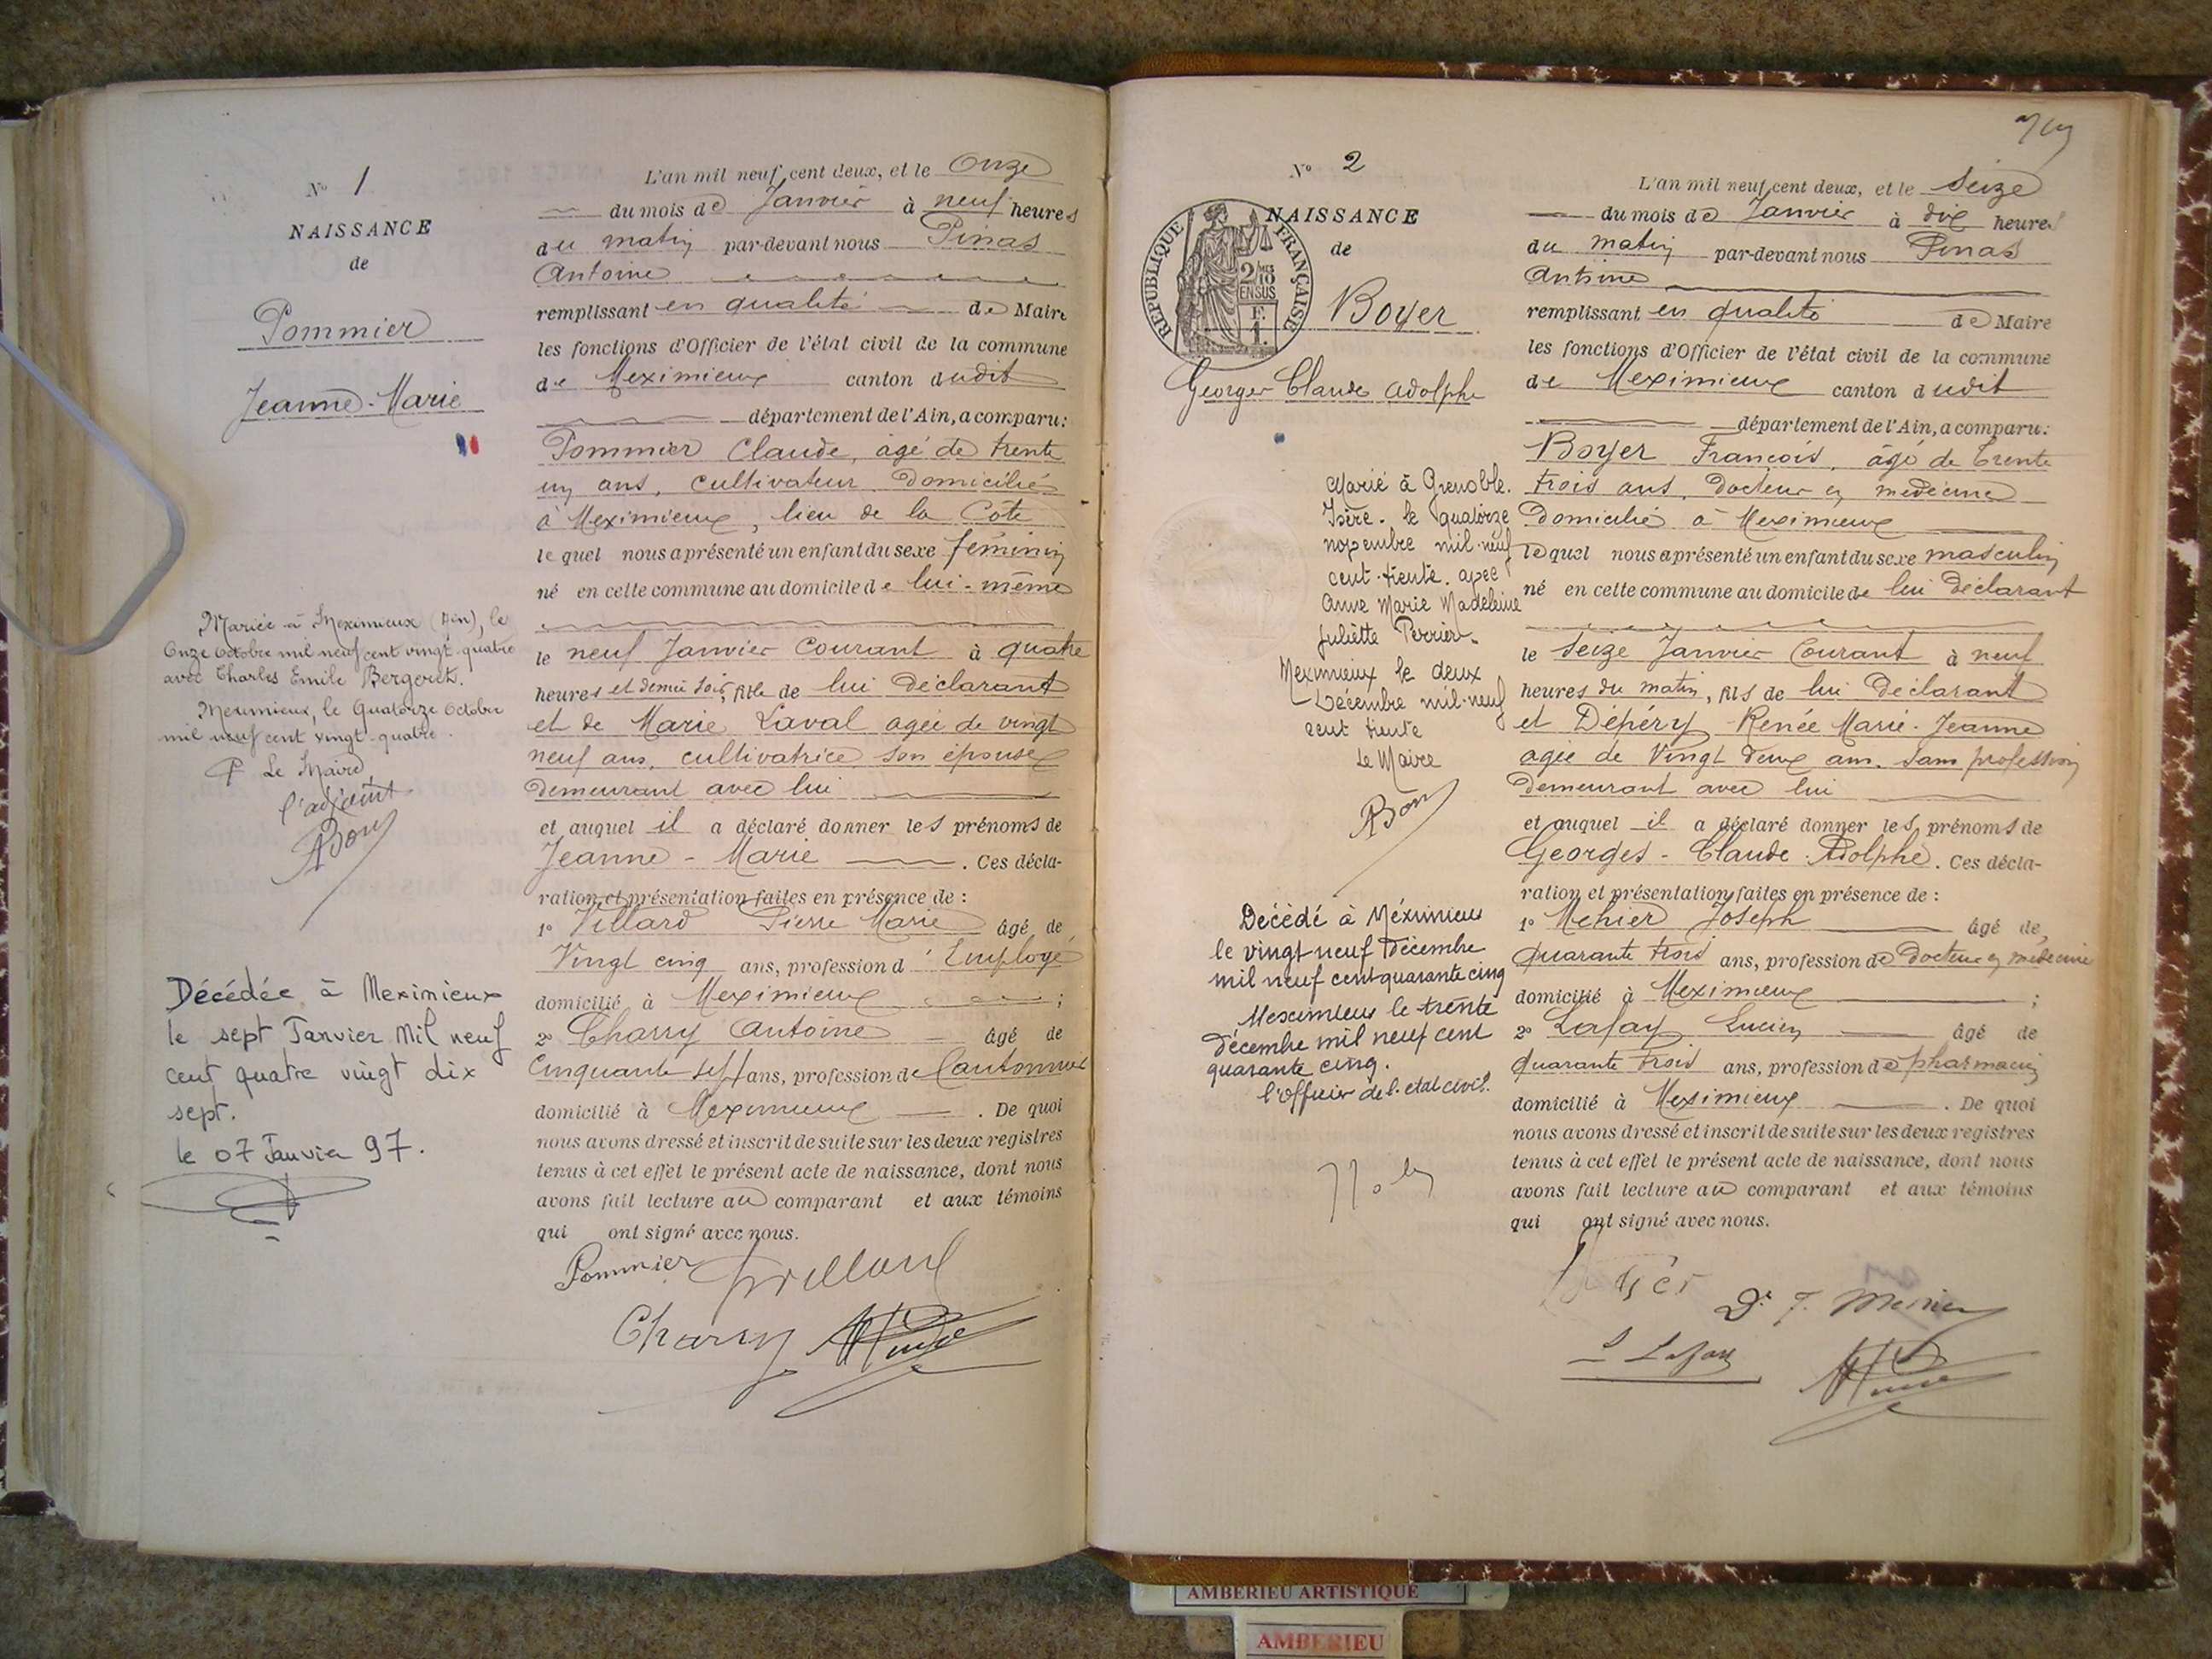 N° 1
NAISSANCE
de
Pommier
Jeanne-Marie
Mariée à Meximieux (Ain), le
Onze Octobre mil neuf cent vingt-quatre
avec Charles Emile Bergeret.
Meximieux, le Quatorze Octobre
mil neuf cent vingt-quatre.
P Le Maire,
l'adjoint
Décédée à Meximieux
le sept Janvier Mil neuf
cent quatre vingt dix
sept.
le 07 Janvier 97.
L'an mil neuf cent deux, et le Onze
du mois de Janvier à neuf heures
du matin par-devant nous Pinas
Antoine
remplissant en qualité de Maire
les fonctions d'Officier de l'état civil de la commune
de Meximieux canton dudit
département de l'Ain, a comparu:
Pommier Claude, âgé de trente
un ans, cultivateur domicilié
à Meximieux, lieu de la Côte
lequel nous a présenté un enfant du sexe féminin
né en cette commune au domicile de lui-même
le neuf Janvier Courant à quatre
heures et demie soir, fille de lui déclarant
et de Marie Laval agée de vingt
neuf ans, cultivatrice son épouse
demeurant avec lui
et auquel il a déclaré donner les prénoms de
Jeanne-Marie . Ces décla-
ration et présentation faites en présence de :
1° Villard Pierre Marie âgé de
Vingt cinq ans, profession d'Employé
domicilié à Meximieux ;
2° Charry Antoine âgé de
Cinquante sept ans, profession de Cantonnier
domicilié à Meximieux . De quoi
nous avons dressé et inscrit de suite sur les deux registres
tenus à cet effet le présent acte de naissance, dont nous
avons fait lecture au comparant et aux témoins
qui ont signé avec nous.
Pommier Villard
Charry
N° 2
NAISSANCE
de
RÉPUBLIQUE FRANÇAISE
EN SUS
F.
1.
Boyer
Georges Claude Adolphe
Marié à Grenoble.
Isère. le quatorze
novembre mil-neuf
cent-trente. avec
Anne Marie Madeleine
Juliette Perrier.
Meximieux le deux
Décembre mil-neuf
cent trente
Le Maire
Décédé à Méximieux
le vingt neuf Décembre
mil neuf cent quarante cinq
Meximieux le trente
décembre mil neuf cent
quarante cinq.
l'officier de l'etat civil.
L'an mil neuf cent deux, et le Seize
du mois de Janvier à dix heures
du matin par-devant nous Pinas
Antoine
remplissant en qualité de Maire
les fonctions d'Officier de l'état civil de la commune
de Meximieux canton dudit
département de l'Ain, a comparu:
Boyer François, âgé de trente
trois ans, Docteur en médecine
Domicilié à Meximieux
lequel nous a présenté un enfant du sexe masculin
né en cette commune au domicile de lui déclarant
le Seize Janvier Courant à neuf
heures du matin, fils de lui déclarant
et Dépéry Renée Marie-Jeanne
agée de Vingt deux ans. Sans profession
Demeurant avec lui
et auquel il a déclaré donner les prénoms de
Georges-Claude-Adolphe. Ces décla-
ration et présentation faites en présence de :
1° Mehier Joseph âgé de
Quarante trois ans, profession de Docteur en médecine
domicilié à Meximieux ;
2° Lafay Lucien âgé de
quarante trois ans, profession de pharmacien
domicilié à Meximieux . De quoi
nous avons dressé et inscrit de suite sur les deux registres
tenus à cet effet le présent acte de naissance, dont nous
avons fait lecture au comparant et aux témoins
qui ont signé avec nous.
Dr J. Mehier
L Lafay
AMBERIEU ARTISTIQUE
AMBERIEU